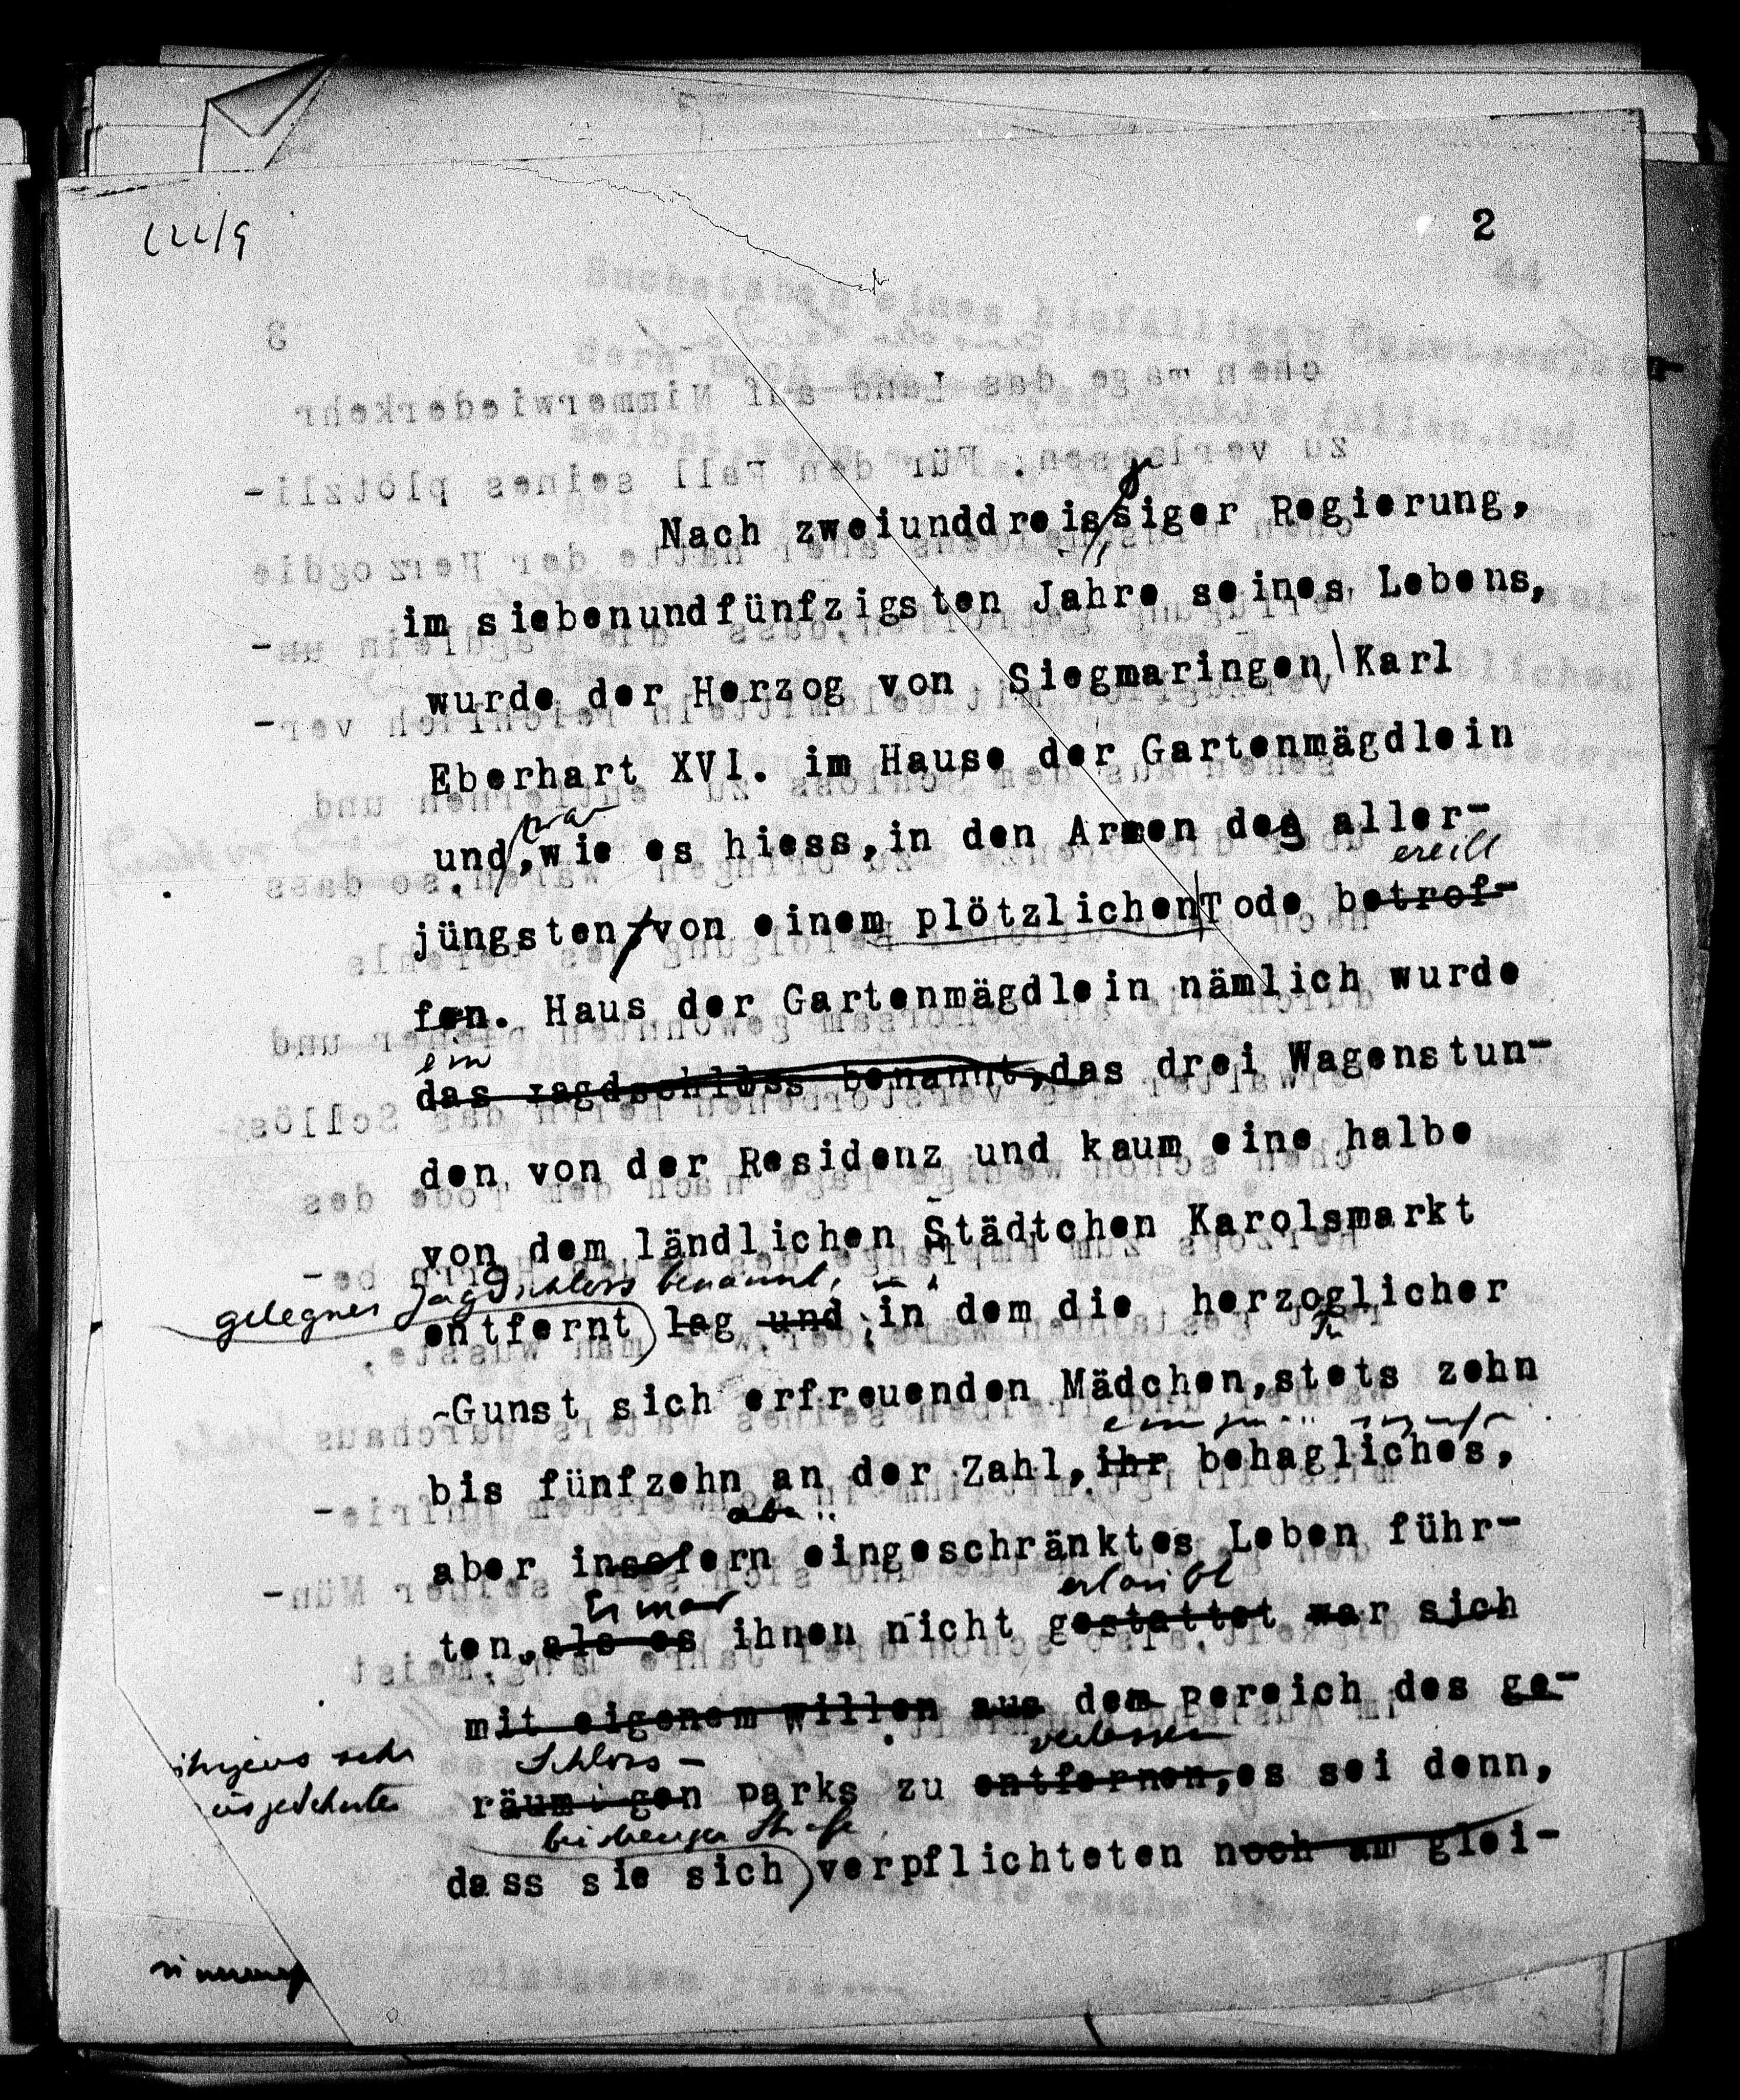 2
Nach zweiunddreissiger Regierung,
im siebenundfünfzigsten Jahre seines Lebens,
wurde der Herzog von Siegmaringen Karl
Eberhart XVI. im Hause der Gartenmägdlein
zwar
und, wie es hiess, in den Armen des aller-
ereilt
jüngsten, von einem plötzlichen Tode betrof-
fen. Haus der Gartenmägdlein nämlich wurde
ein
das Jagdschloss benannt, das drei Wagenstun-
den von der Residenz und kaum eine halbe
von dem ländlichen Städtchen Karolsmarkt
gelegnes Jagdschloss benannt,
entfernt lag und in dem die herzoglicher
Gunst sich erfreuenden Mädchen, stets zehn
bis fünfzehn an der Zahl, ihr behagliches,
aber
aber insofern eingeschränktes Leben führ-
Es war erlaubt
ten, als es ihnen nicht gestattet war sich
mit eigenem Willen aus dem Bereich des ge-
Schloss- verlassen
räumigen Parks zu entfernen, es sei denn,
bei strenger Strafe
dass sie sich verpflichteten noch am glei-